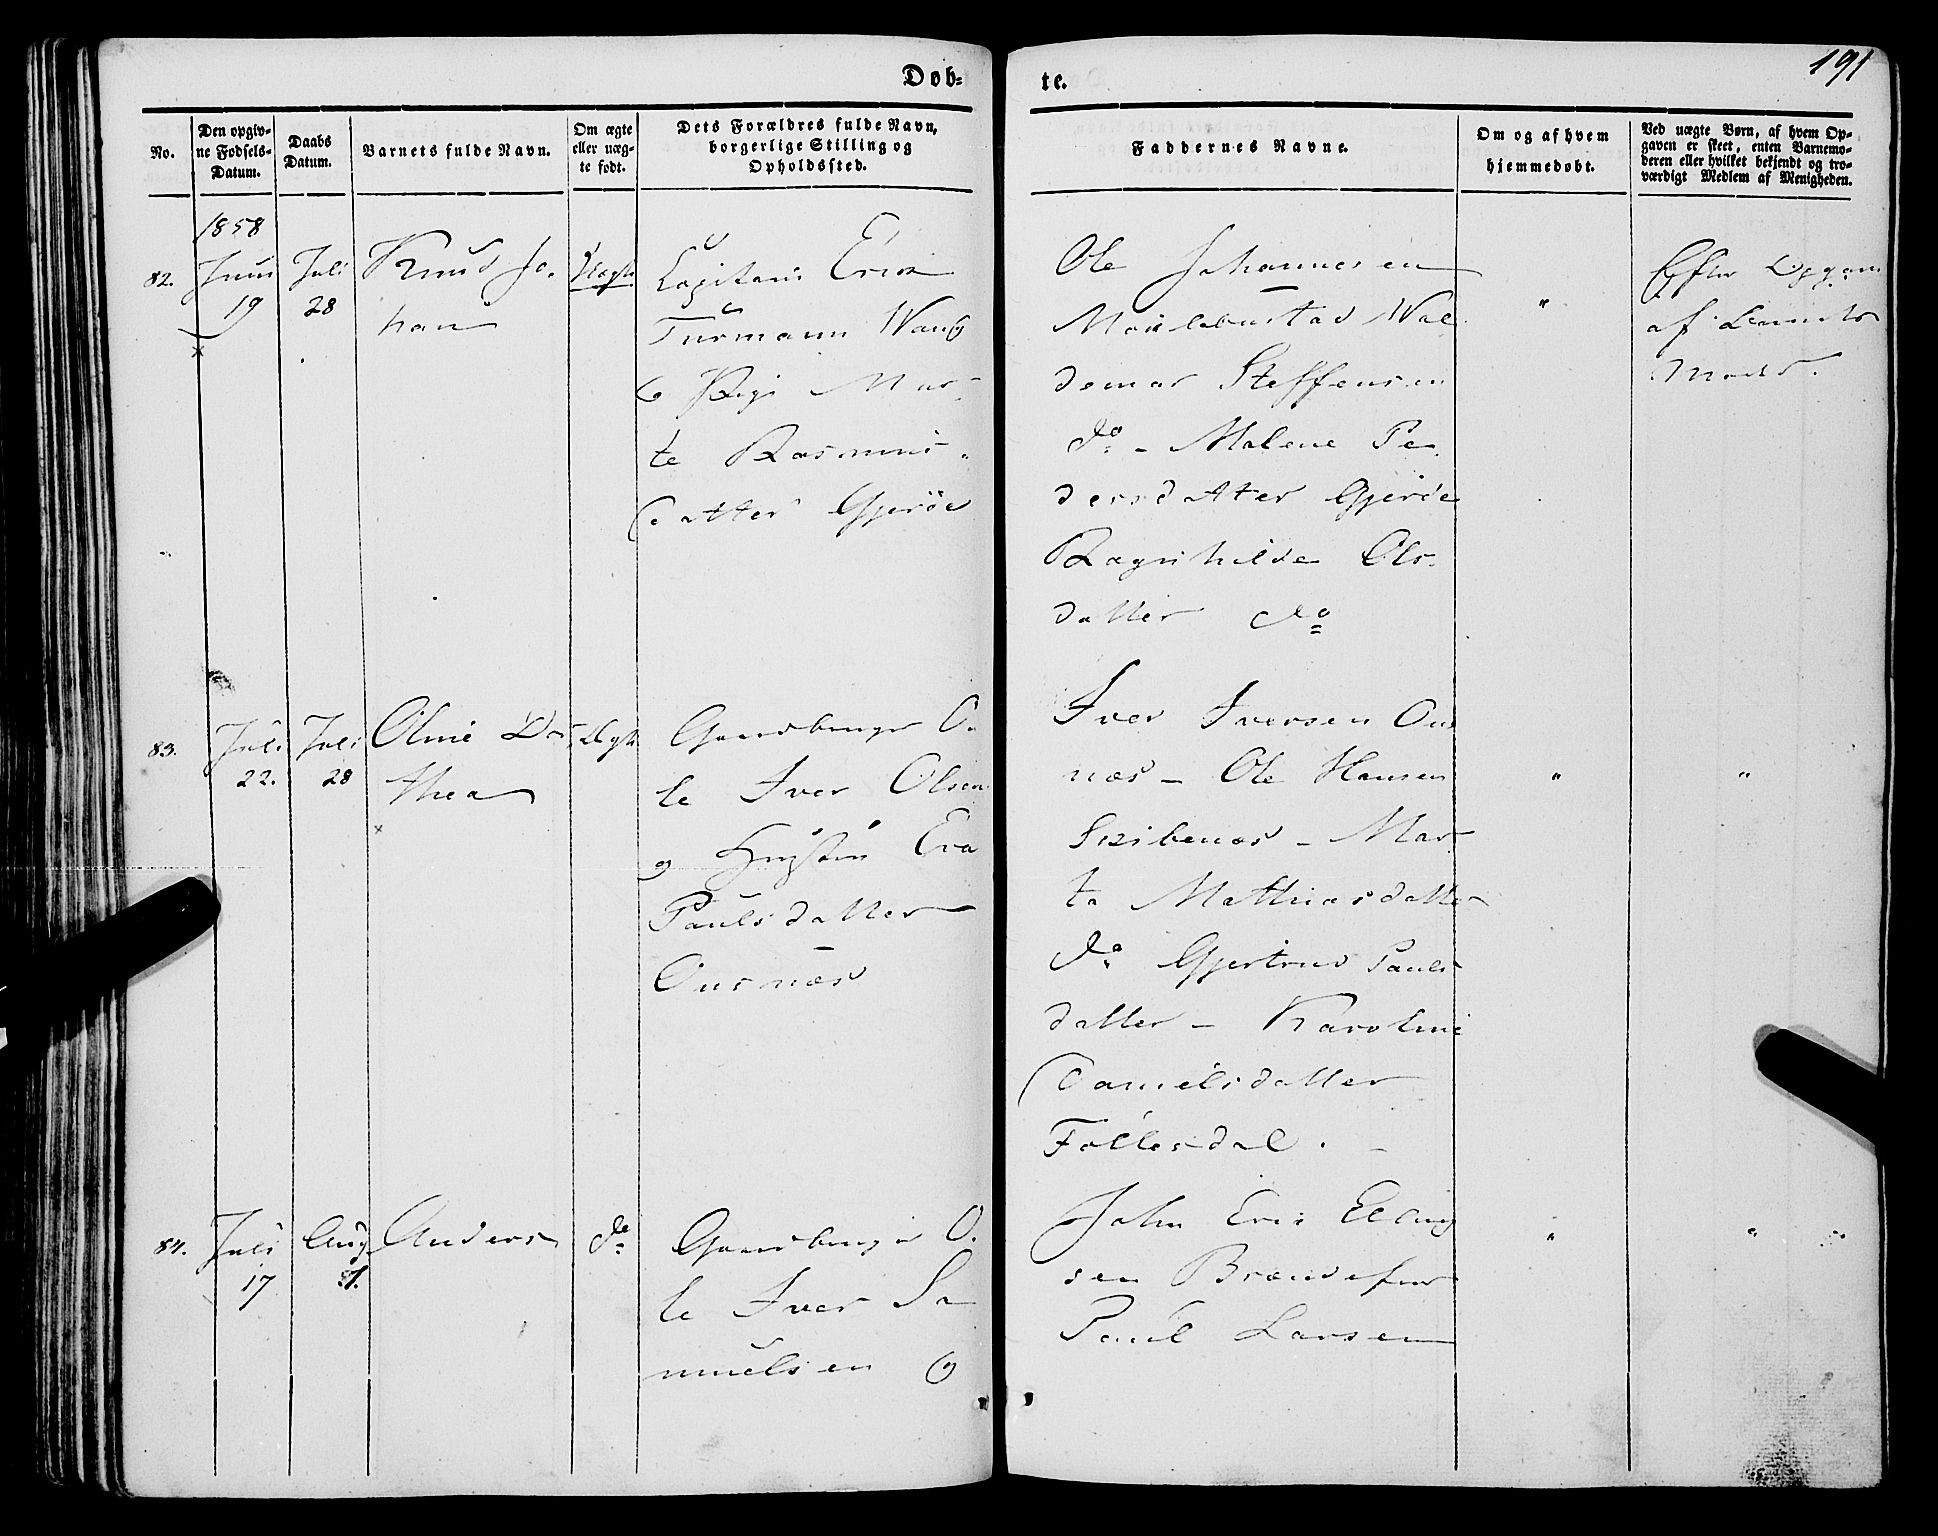 191
Døb-
te.
No.
Den opgiv-
ne Fødsels-
Datum.
Daabs
Datum.
Barnets fulde Navn.
Om ægte
eller uæg-
te født.
Dets Forældres fulde Navn,
borgerlige Stilling og
Opholdssted.
Faddernes Navne.
Om og af hvem
hjemmedøbt.
Ved uægte Børn, af hvem Op-
gaven er skeet, enten Barnemo-
deren eller hvilket bekjendt og tro-
værdigt Medlem af Menigheden.
1858
82.
Juni
19
Juli
28
Knud Jo-
han
Uægte
Capitain Erik
Turmann Wang
og Pige Mar-
te Rasmus-
datter Gjerde
Ole Johannesen
Mouldbustad Wal
demar Steffensen
do - Malene Pe
dersdatter Gjerde
Ragnhilde Ols-
datter do
"
Efter Opgave
af Barnets
Moder.
83.
Juli
22.
Juli
28
Oline Do-
thea
Ægte
Gaardbruger O-
le Iver Olsen
og Hustru Eva
Paulsdatter
Ousnæs
Iver Iversen Ous
næs - Ole Hansen
Skibenæs - Mar
ta Mathiasdatter
do Gjertrud Pauls
datter - Karoline
Danielsdatter
Follesdal. -
"
"
84.
Juli
17
Aug
1.
Anders
do
Gaardbruger O-
le Iver Sa-
muelsen og
John Eric Elling
sen
Paul Larsen
"
"